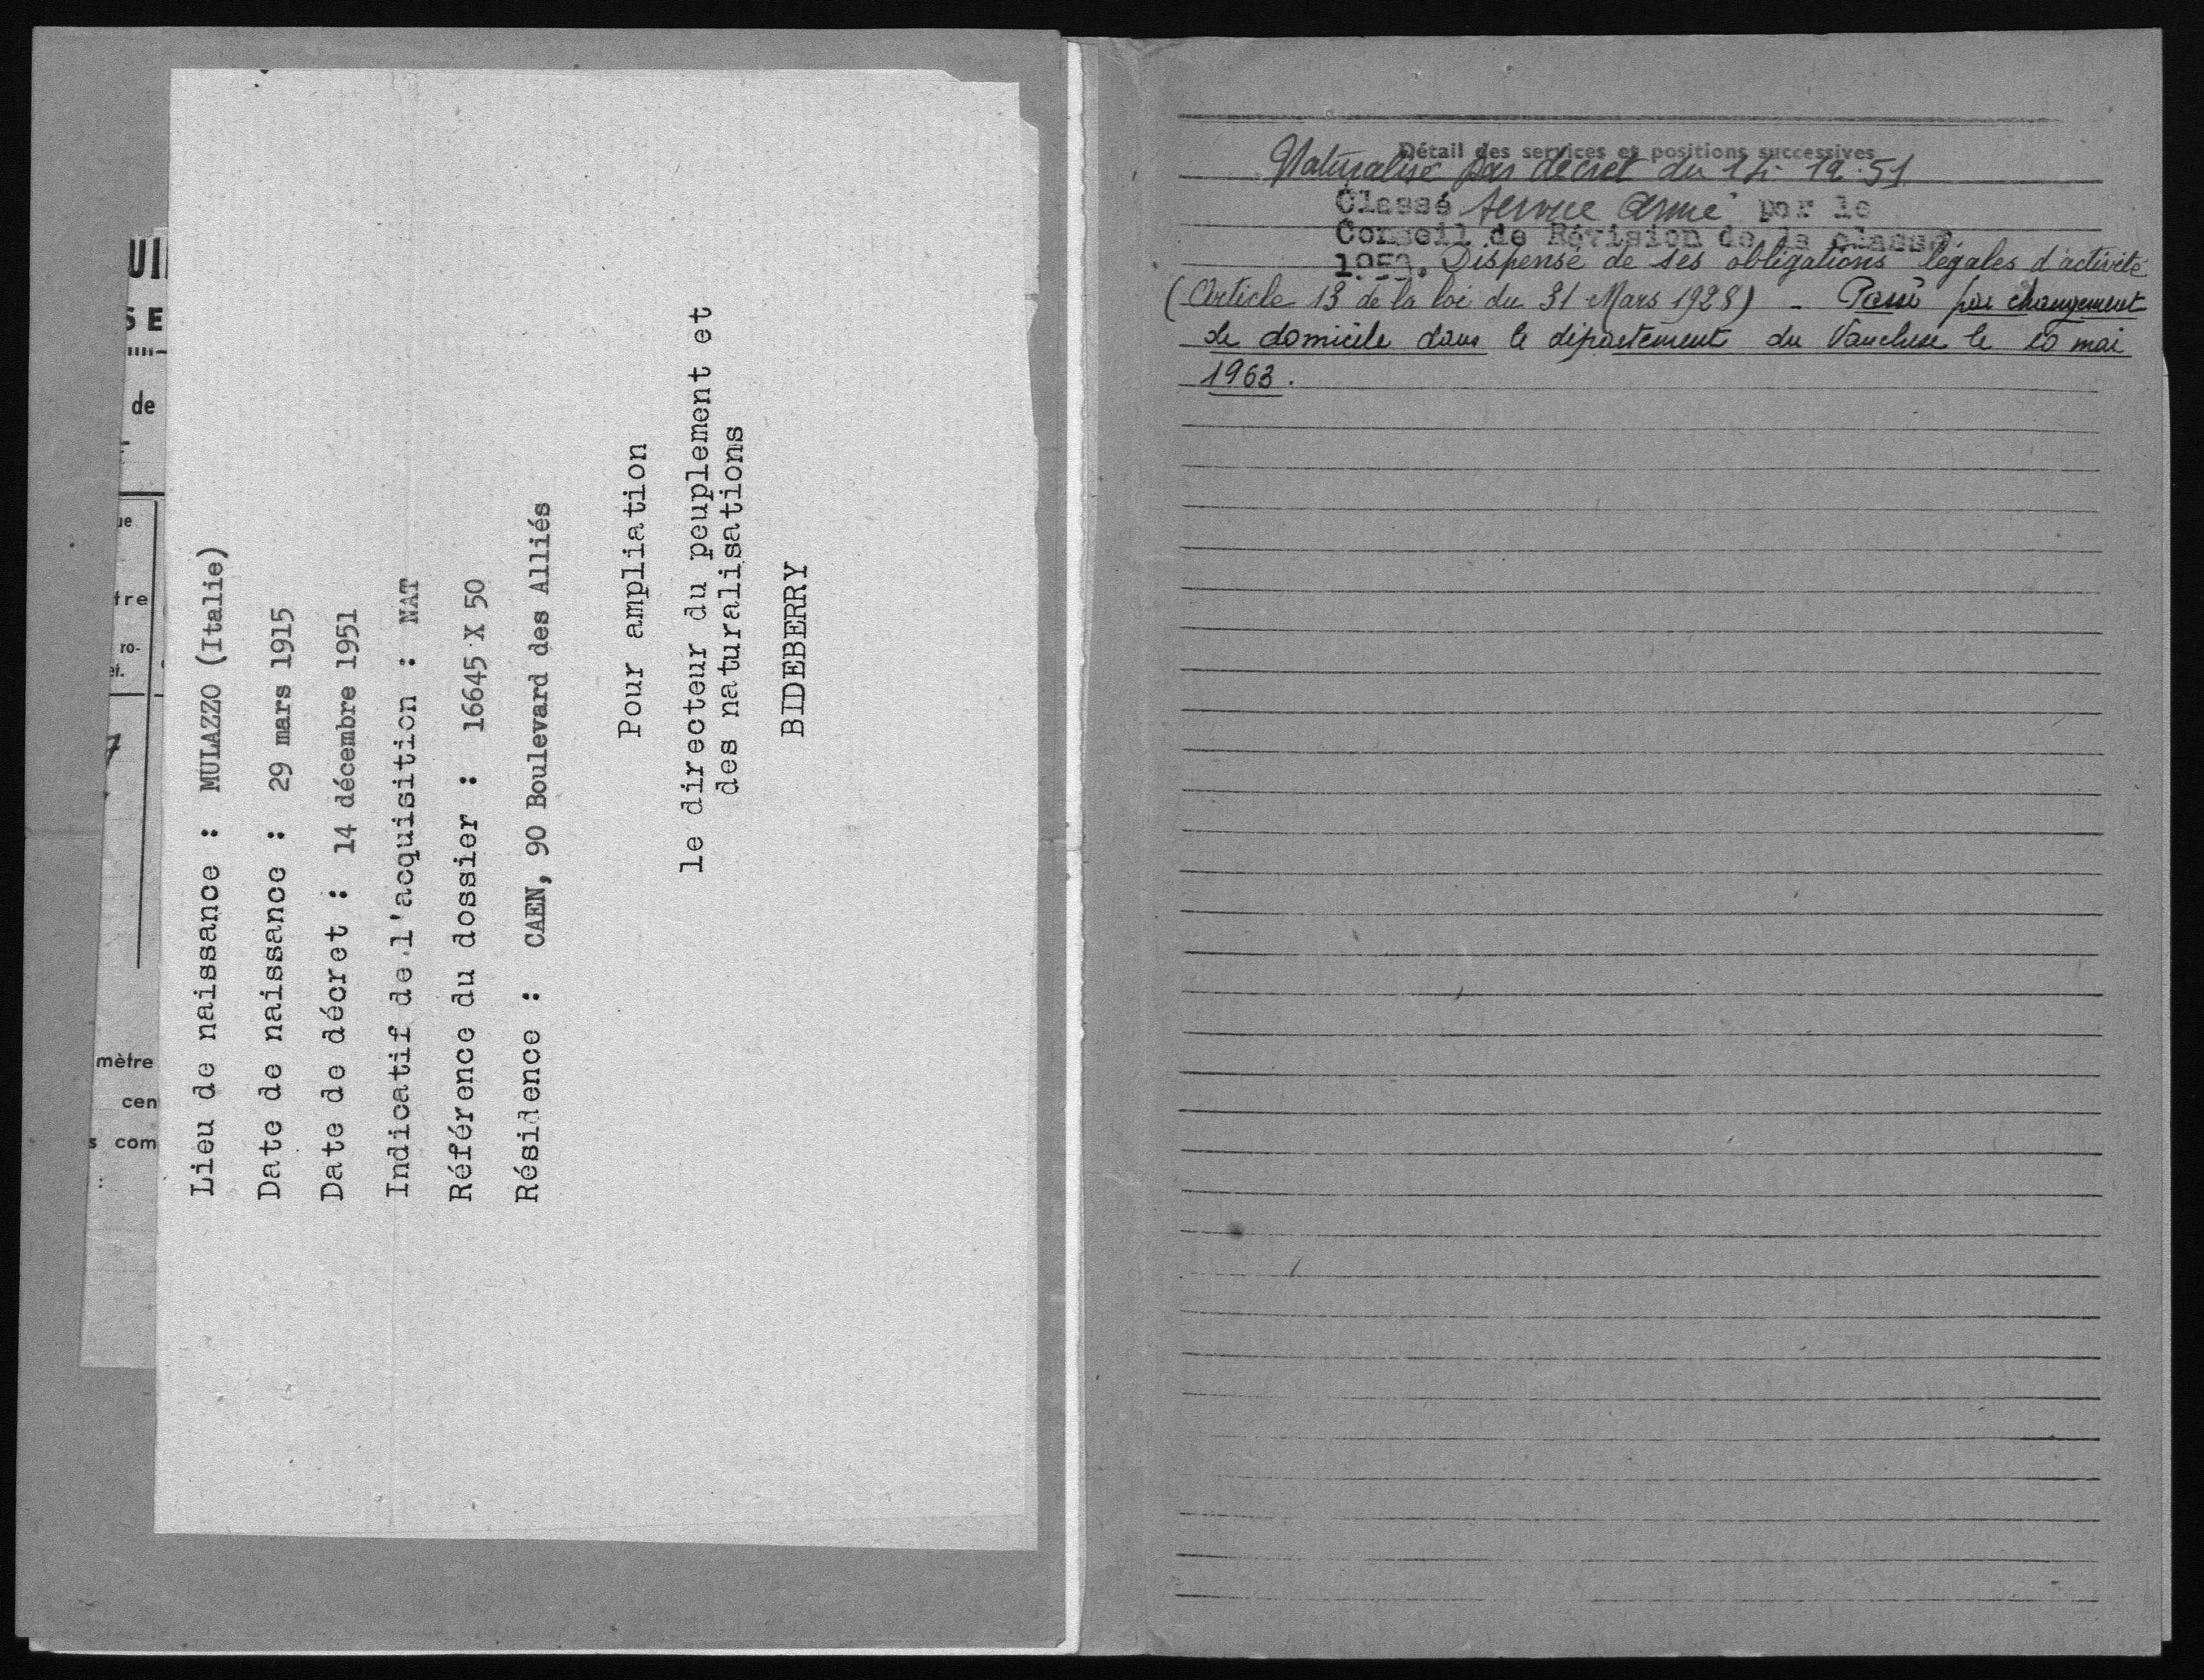 UI
SE
de
ue
tre
ro-
ef.
7
mètre
cen
s com
:
Lieu de naissance : MULAZZO (Italie)
Date de naissance : 29 mars 1915
Date de décret : 14 décembre 1951
Indicatif de l'acquisition : NAT
Référence du dossier : 16645 X 50
Résidence : CAEN, 90 Boulevard des Alliés
Pour ampliation
le directeur du peuplement et
des naturalisations
BIDEBERRY
Détail des services et positions successives
Naturalisé par décret du 14. 12. 51
Classé service armé par le
Conseil de Révision de la classe
Dispensé de ses obligations légales d'activité
(Article 13 de la loi du 31 Mars 1928) - Passé par changement
de domicile dans le département du Vaucluse le 20 mai
1963.